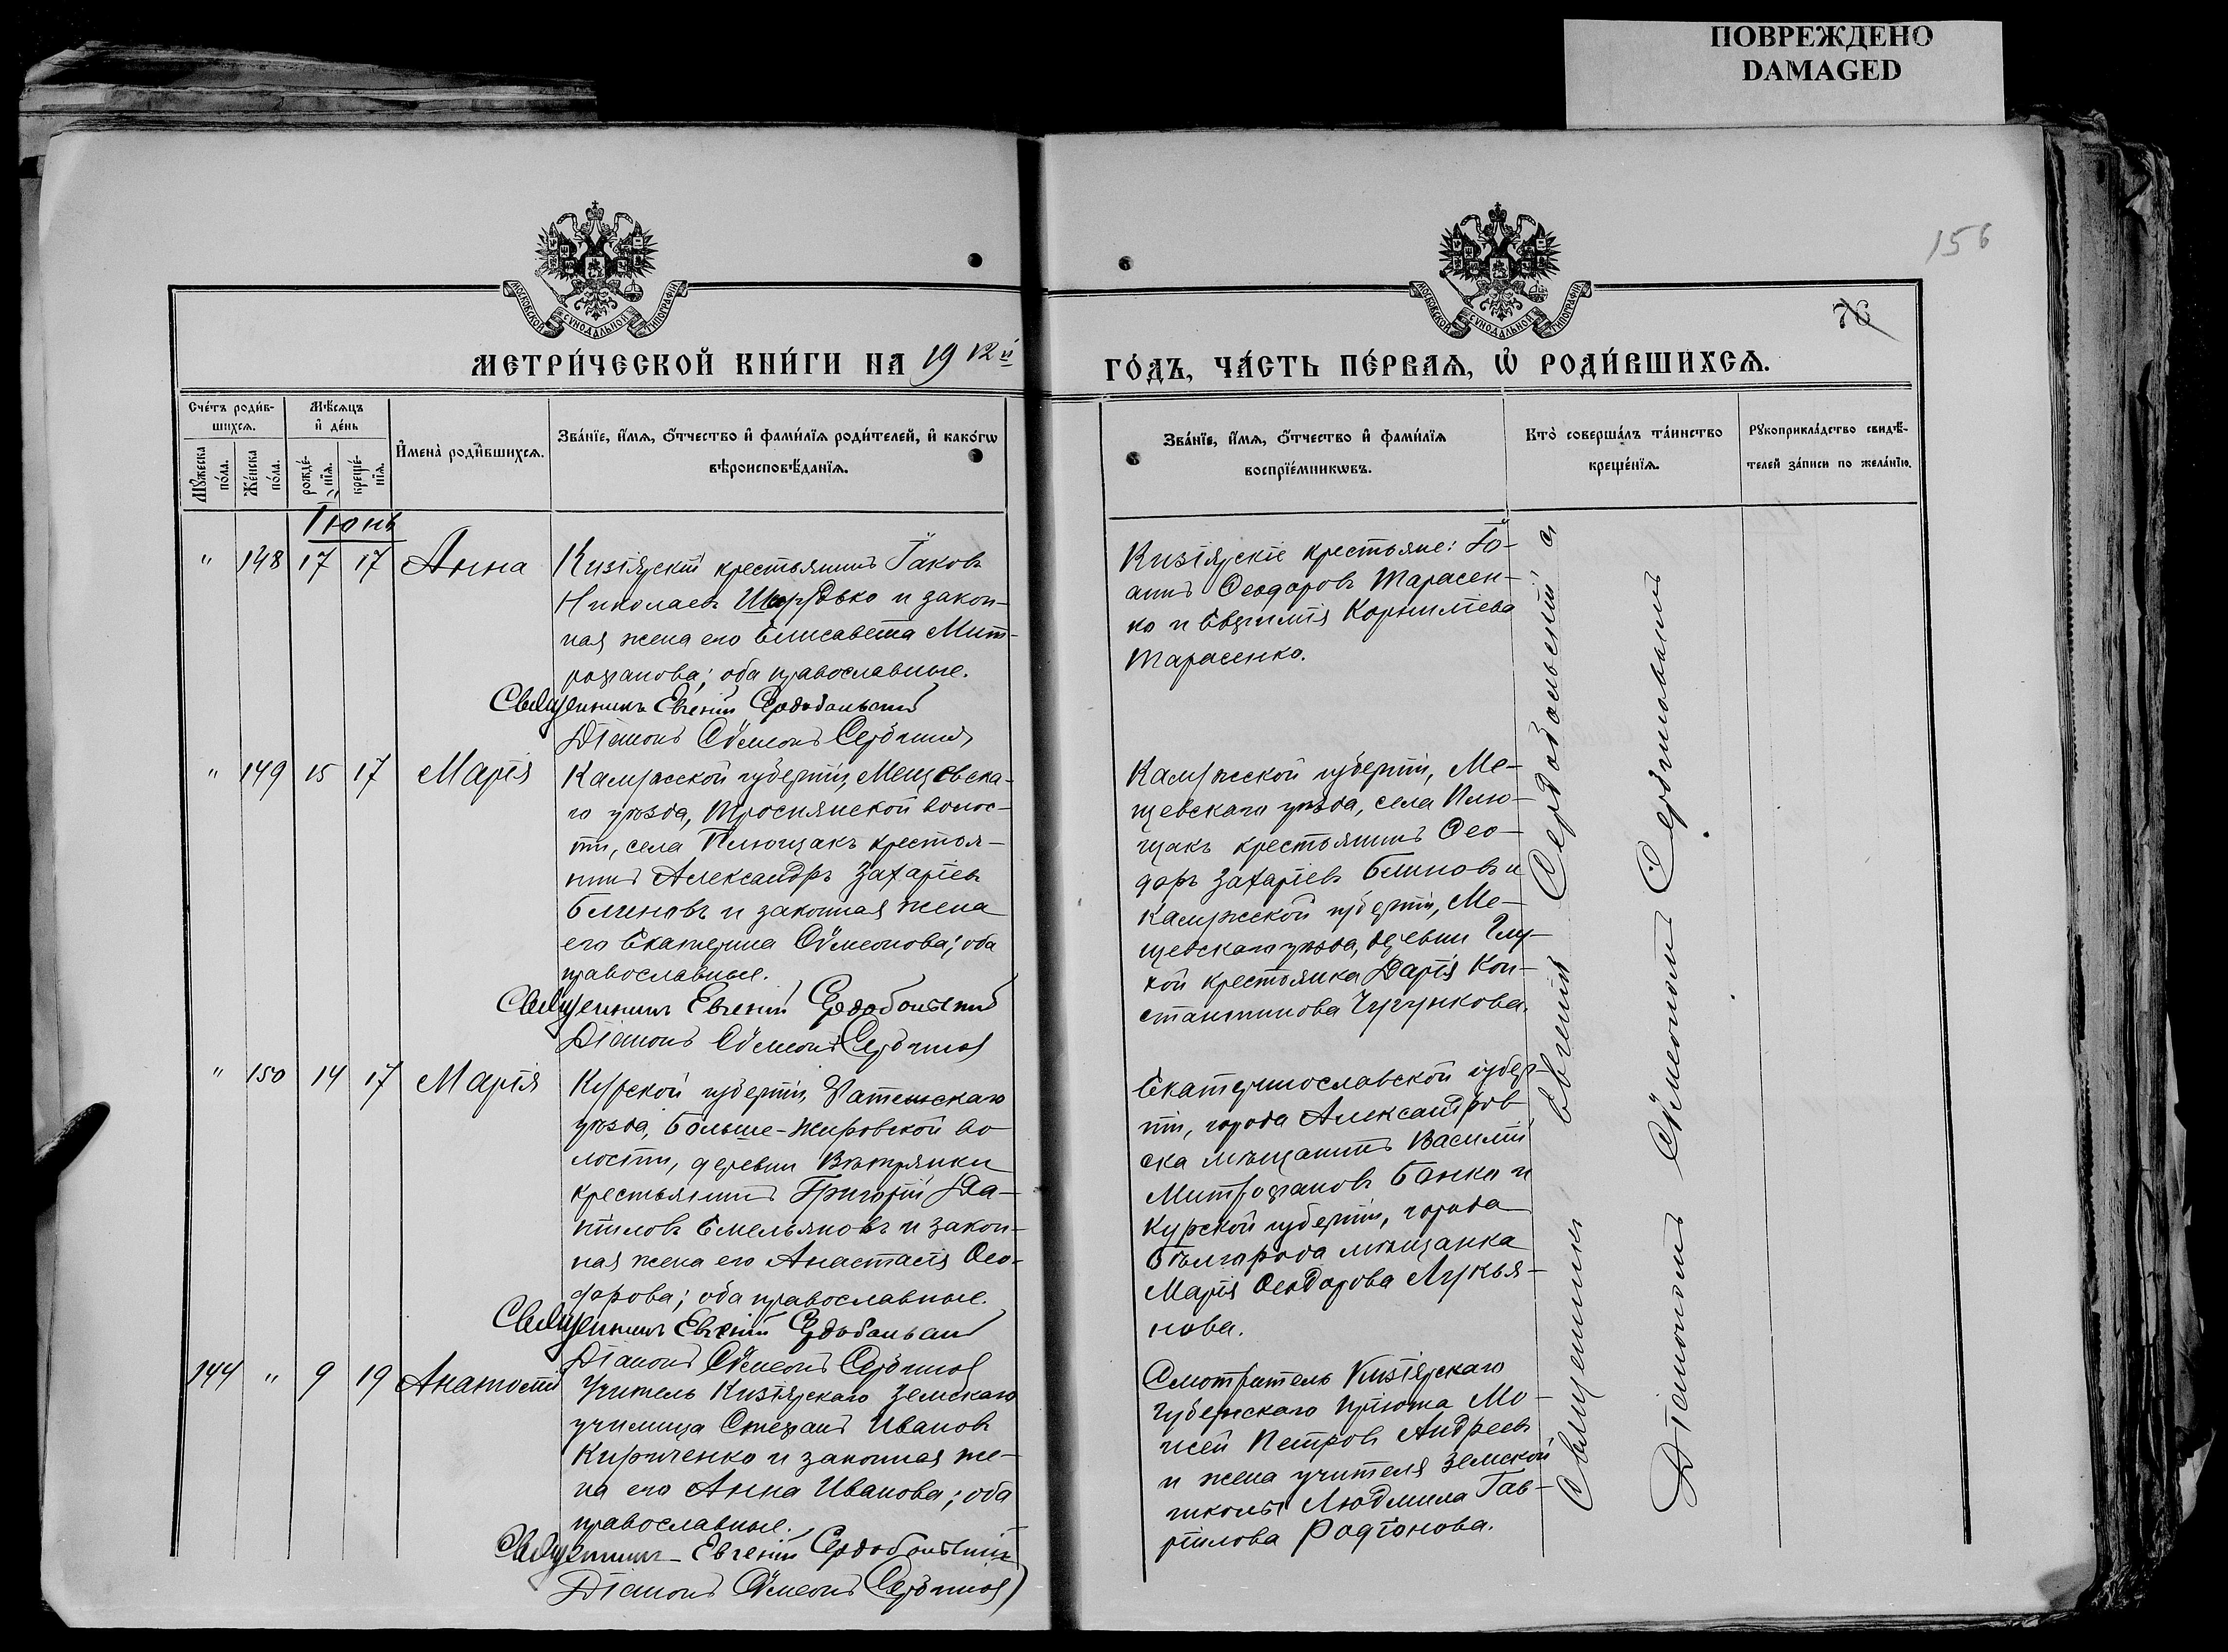 ПОВРЕЖДЕНО
DAMAGED
156
76
МОСКОВСКОЙ СѴНОДАЛЬНОЙ ТИПОГРАФІИ
МОСКОВСКОЙ СѴНОДАЛЬНОЙ ТИПОГРАФІИ
МЕТРИ́ЧЕСКОЙ КНИ́ГИ НА 1912й
ГО́ДЪ, ЧА́СТЬ ПЕ́РВАѦ, Ѡ҆ РОДИ́ВШИХСѦ.
Сче́тъ роди́в-
шихсѧ.
Мѣ́сѧцъ
и҆ де́нь
И҆мена̀ роди́вшихсѧ.
Зва́нїе, и҆́мѧ, ѻ҆́тчество и҆ фами́лїѧ роди́телей, и҆ како́гѡ
вѣроисповѣ́данїѧ.
Мꙋжеска по́ла.
Же́нска по́ла.
рожде́нїѧ.
креще́нїѧ.
Зва́нїе, и҆́мѧ, ѻ҆́тчество и҆ фами́лїѧ
воспрїе́мникѡвъ.
Кто̀ соверша́лъ та́инство
креще́нїѧ.
Рꙋкоприкла́дство свидѣ́-
телей за́писи по жела́нїю.
Іюнь
" 148 17 17 Анна
Кизіярскій крестьянинъ Іаковъ
Николаевъ Шкурдько и закон-
ная жена его Елисавета Мит-
рофанова; оба православные.
Священникъ Евгеній Сердобольскій
Діаконъ Сѵмеонъ
Кизіярскіе крестьяне: Іо-
аннъ Ѳеодоровъ Тарасен-
ко и Евфимія Корнилiева
Тарасенко.
" 149 15 17 Марія
Калужской губерніи, Мещовска-
го уѣзда, Троснянской волос-
ти, села Плющакъ крестья-
нинъ Александръ Захаріевъ
Блиновъ и законная жена
его Екатерина Сѵмеонова; оба
православные.
Священникъ Евгеній Сердобольскій
Діаконъ Сѵмеонъ
Калужской губерніи, Ме-
щевскаго уѣзда, села Плю-
щакъ крестьянинъ Ѳео-
доръ Захаріевъ Блиновъ и
Калужской губерніи, Ме-
щевскаго уѣзда, деревни Глу-
хой крестьянка Дарія Кон-
стантинова Чугункова.
" 150 14 17 Марія
Курской губерніи, Фатежскаго
уѣзда, Больше-Жировской во
лости, деревни Вѣтрянки
крестьянинъ Григорій Да-
ніиловъ Емельяновъ и закон-
ная жена его Анастасія Ѳео-
дорова; оба православные.
Священникъ Евгеній Сердобольскій
Діаконъ Сѵмеонъ
Екатеринославской губер-
ніи, города Александров-
ска мѣщанинъ Василій
Митрофановъ Банко и
Курской губерніи, города
Бѣлгорода мѣщанка
Марія Ѳеодорова Лукья-
нова.
144 " 9 19 Анатолій
Учитель Кизіярскаго земскаго
училища Стефанъ Ивановъ
Кириченко и законная же-
на его Анна Иванова; оба
православные.
Священникъ Евгеній Сердобольскій
Діаконъ Сѵмеонъ
Смотритель Кизіярскаго
Губернскаго пріюта Мо-
исей Петровъ Андреевъ
и жена учителя земской
школы Людмила Гав-
ріилова Родіонова.
Священникъ Евгеній Сердобольскій съ
Діакономъ Сѵмеономъ